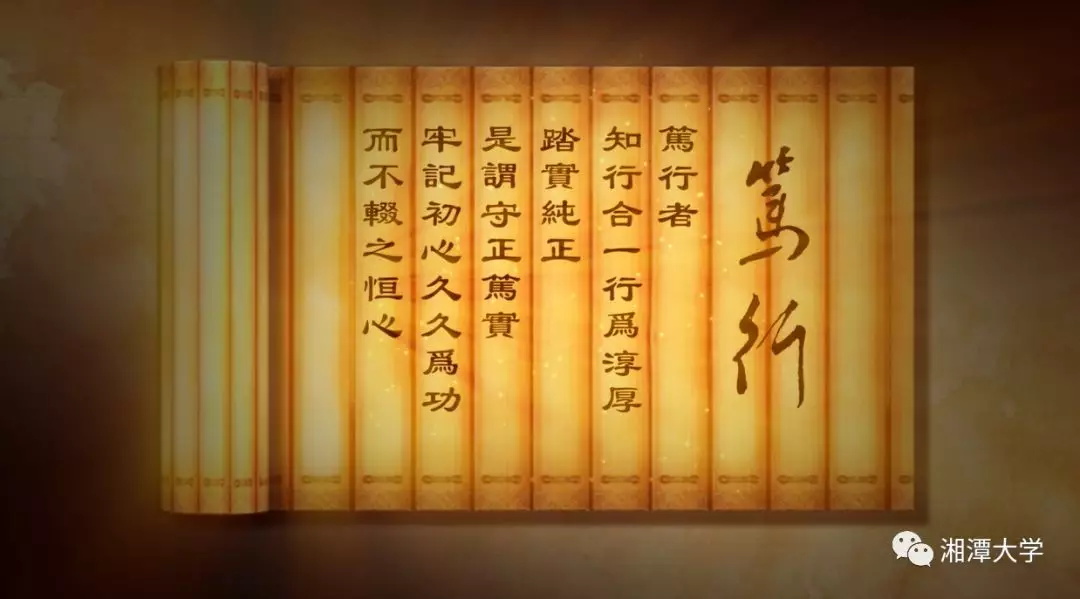 篤行
篤行者
知行合一行爲淳厚
踏實純正
是謂守正篤實
牢記初心久久爲功
而不輟之恒心
湘潭大学